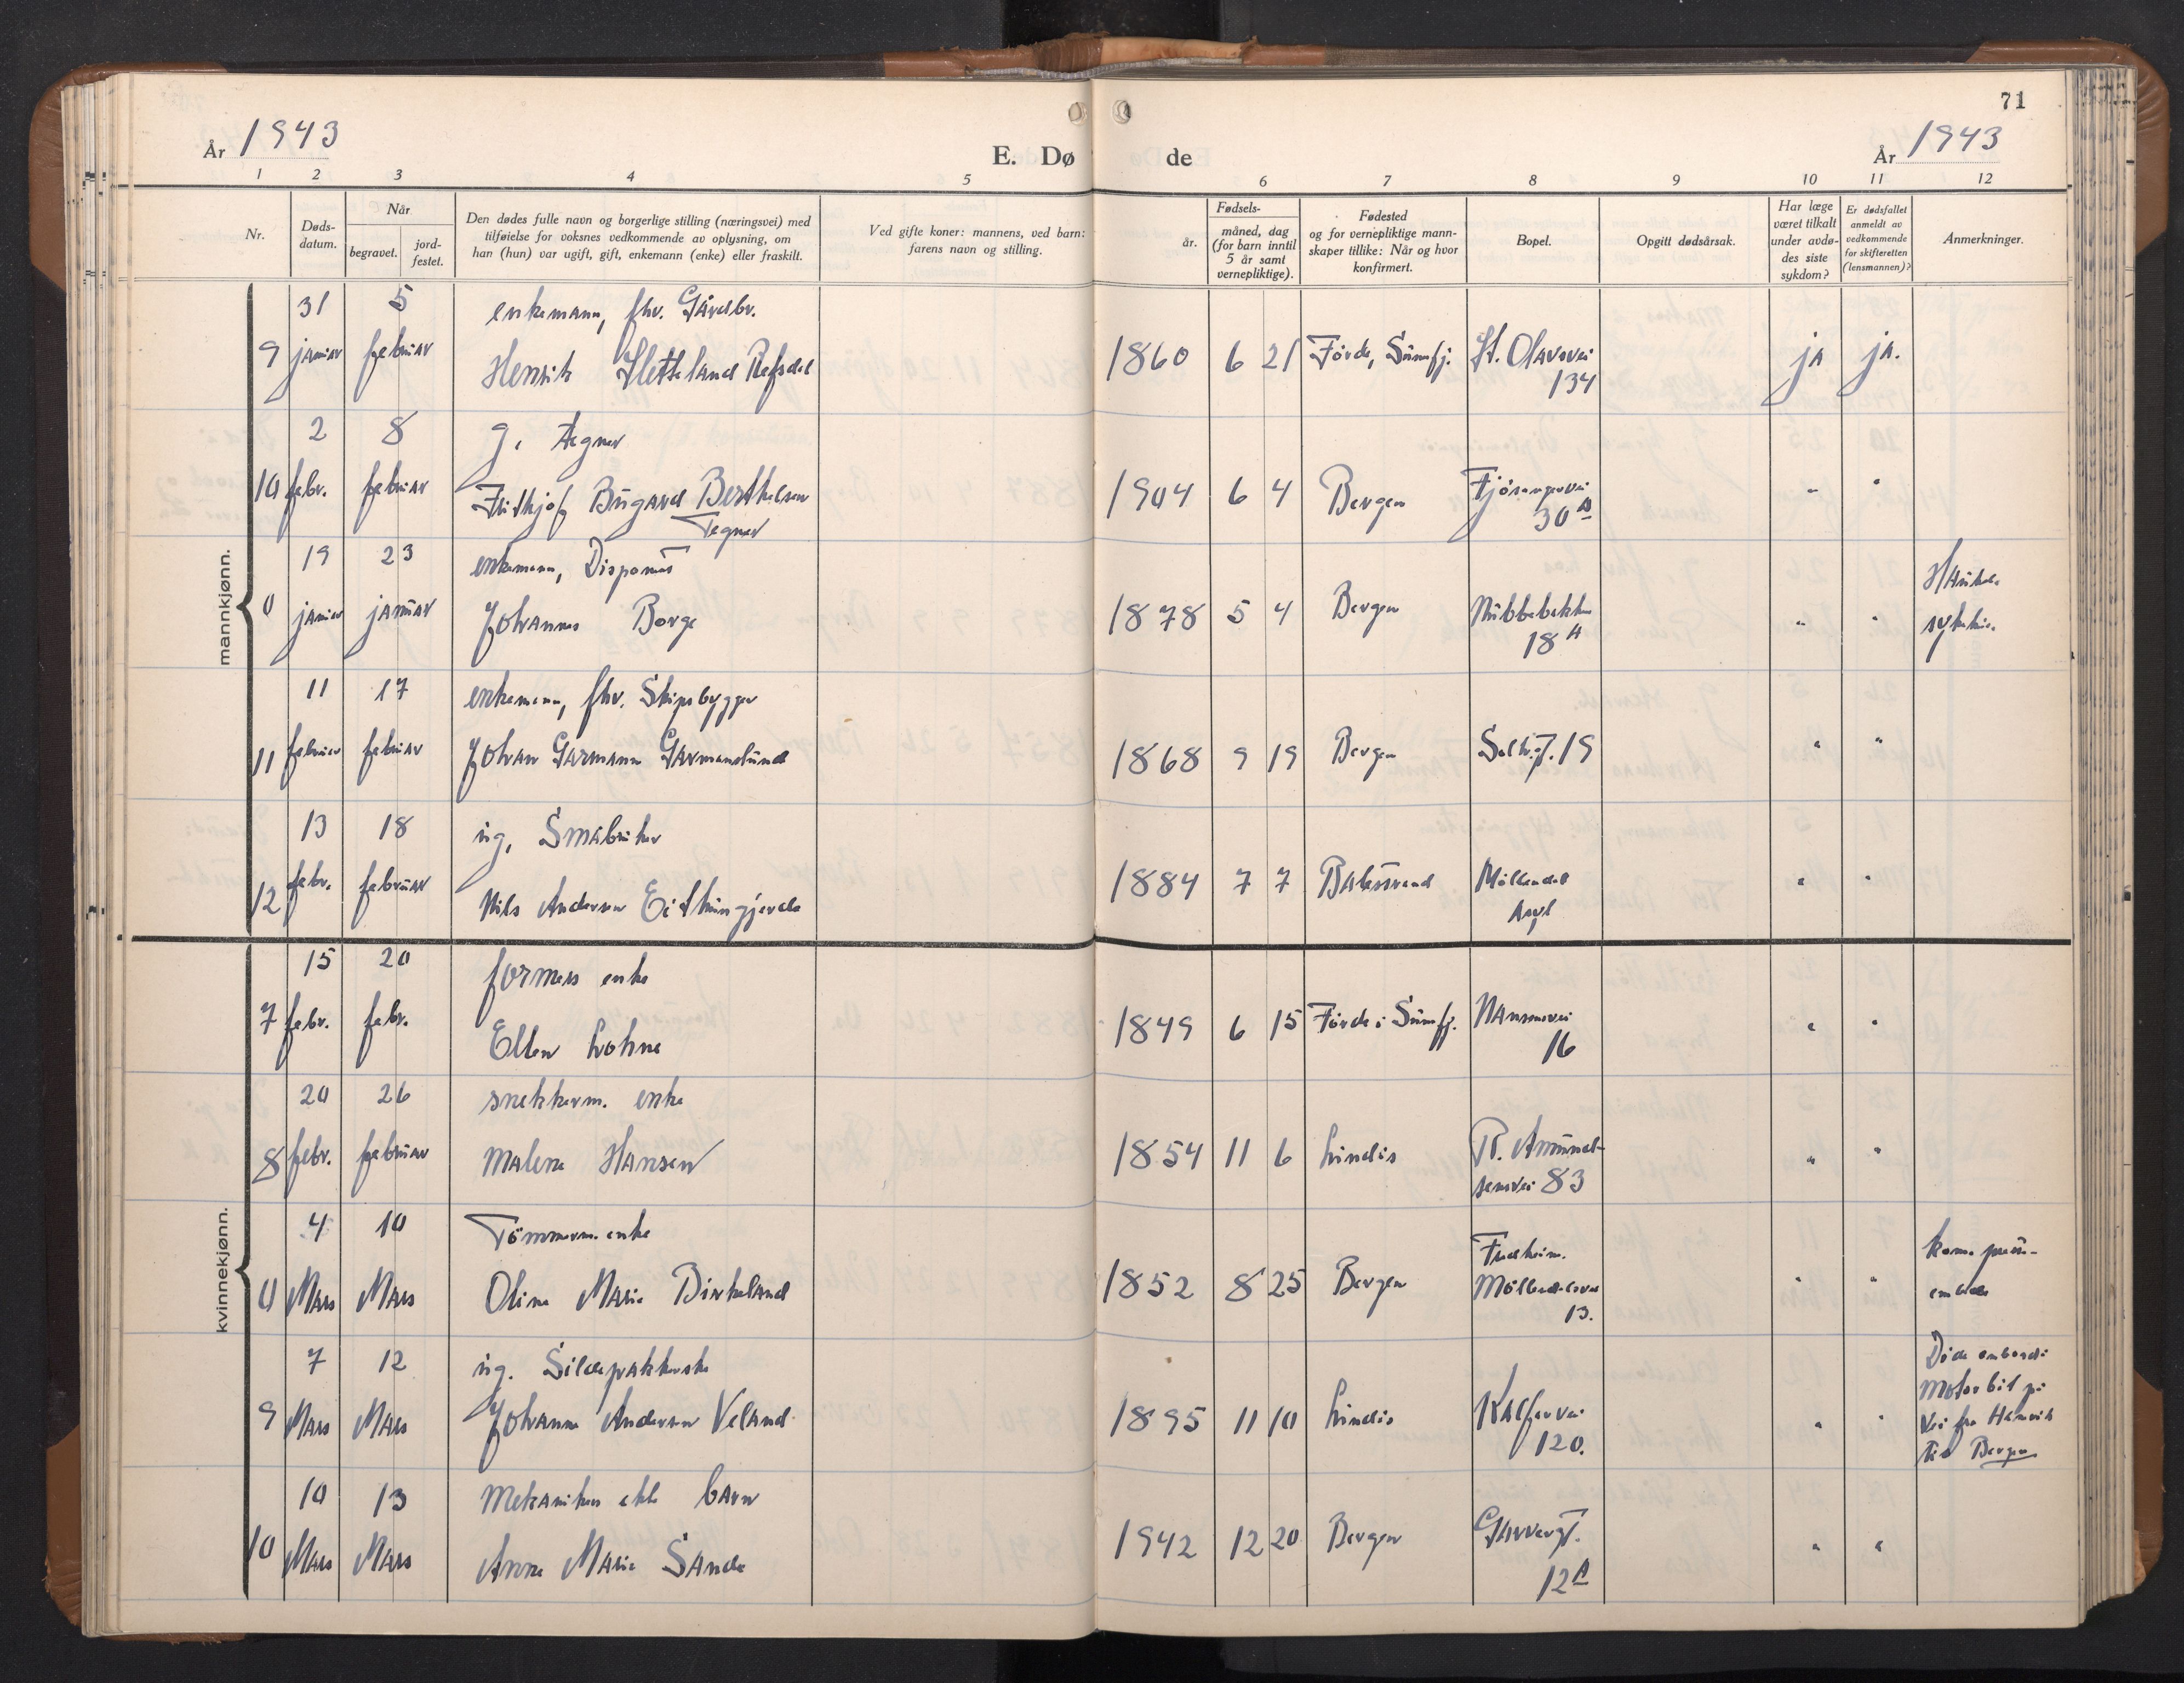 71
År 1943
E. Dø de
År 1943
1 2 3 4 5 6 7 8 9 10 11 12
Nr.
Døds-
datum.
Når
begravet.
jord-
festet.
Den dødes fulle navn og borgerlige stilling (næringsvei) med
tilføielse for voksnes vedkommende av oplysning, om
han (hun) var ugift, gift, enkemann (enke) eller fraskilt.
Ved gifte koner: mannens, ved barn:
farens navn og stilling.
Fødsels-
år.
måned, dag
(for barn inntil
5 år samt
vernepliktige).
Fødested
og for vernepliktige mann-
skaper tillike: Når og hvor
konfirmert.
Bopel.
Opgitt dødsårsak.
Har læge
været tilkalt
under avdø-
des siste
sykdom?
Er dødsfallet
anmeldt av
vedkommende
for skifteretten
(lensmannen)?
Anmerkninger.
mannkjønn.
31 5 enkemann, fhv. Gårdbr.
9 januar februar Henrik Hetleland Refsdal 1860 6 21 Förde, Sunnfj. St. Olavsvei
134
ja ja.
2 8 g. Tegner
10 febr. februar Frithjof Bugard Berthelsen
Tegner
1904 6 4 Bergen Fjösangervei
30 A
" "
19 23 enkemann, Disponent
0 januar januar Johannes Borge 1878 5 4 Bergen Nubbebakken
18 A
" "
Haukel.
sykehus.
11 17 enkemann, fhv. Skipsbygger
11 februar februar Johan Garmann Garmannslund 1868 9 19 Bergen Solh.gt. 19 " "
13 18 ug, Småbruker
12 febr. februar Nils Andersen Eithungjerde 1884 7 7 Balestrand Möllendal
Asyl
" "
kvinnekjønn.
15 20 formers enke
7 febr. febr. Ellen Lohne 1849 6 15 Förde i Sunnfj. Nansensvei
16
" "
20 26 snekkerm. enke
8 febr. februar Malene Hansen 1854 11 6 Lindås R. Amund-
sensvei 83
" "
4 10 Tömmerm. enke
0 Mars Mars Oline Marie Birkeland 1852 8 25 Bergen Fredheim.
Möllendalsvei
13.
" "
7 12 ug. Sildepakkerske
9 Mars Mars Johanne Andersen Veland 1895 11 10 Lindås Kalfarvei
120.
" "
Döde ombord i
Motorbåt på
vei fra
til Bergen
10 13 Mekaniker ekte barn
10 Mars Mars Anne Marie Sande 1942 12 20 Bergen Garvergt.
12 A
" "